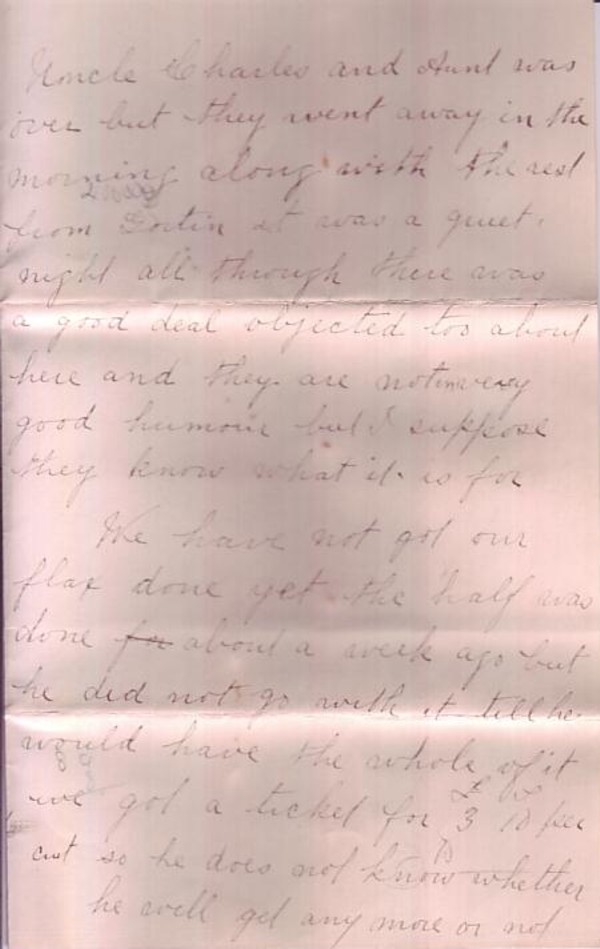 Uncle Charles and Aunt was
over but they went away in the
morning along with the rest
from Gortin it was a quiet
night all through there was
a good deal objected too about
here and they are not in very
good humour but I suppose
they know what it is for
We have not got our
flax done yet the half was
done for about a week ago but
he did not go with it till he
would have the whole of it
we got a ticket for £3 10 per
cwt so he does not know whether
he will get any more or not